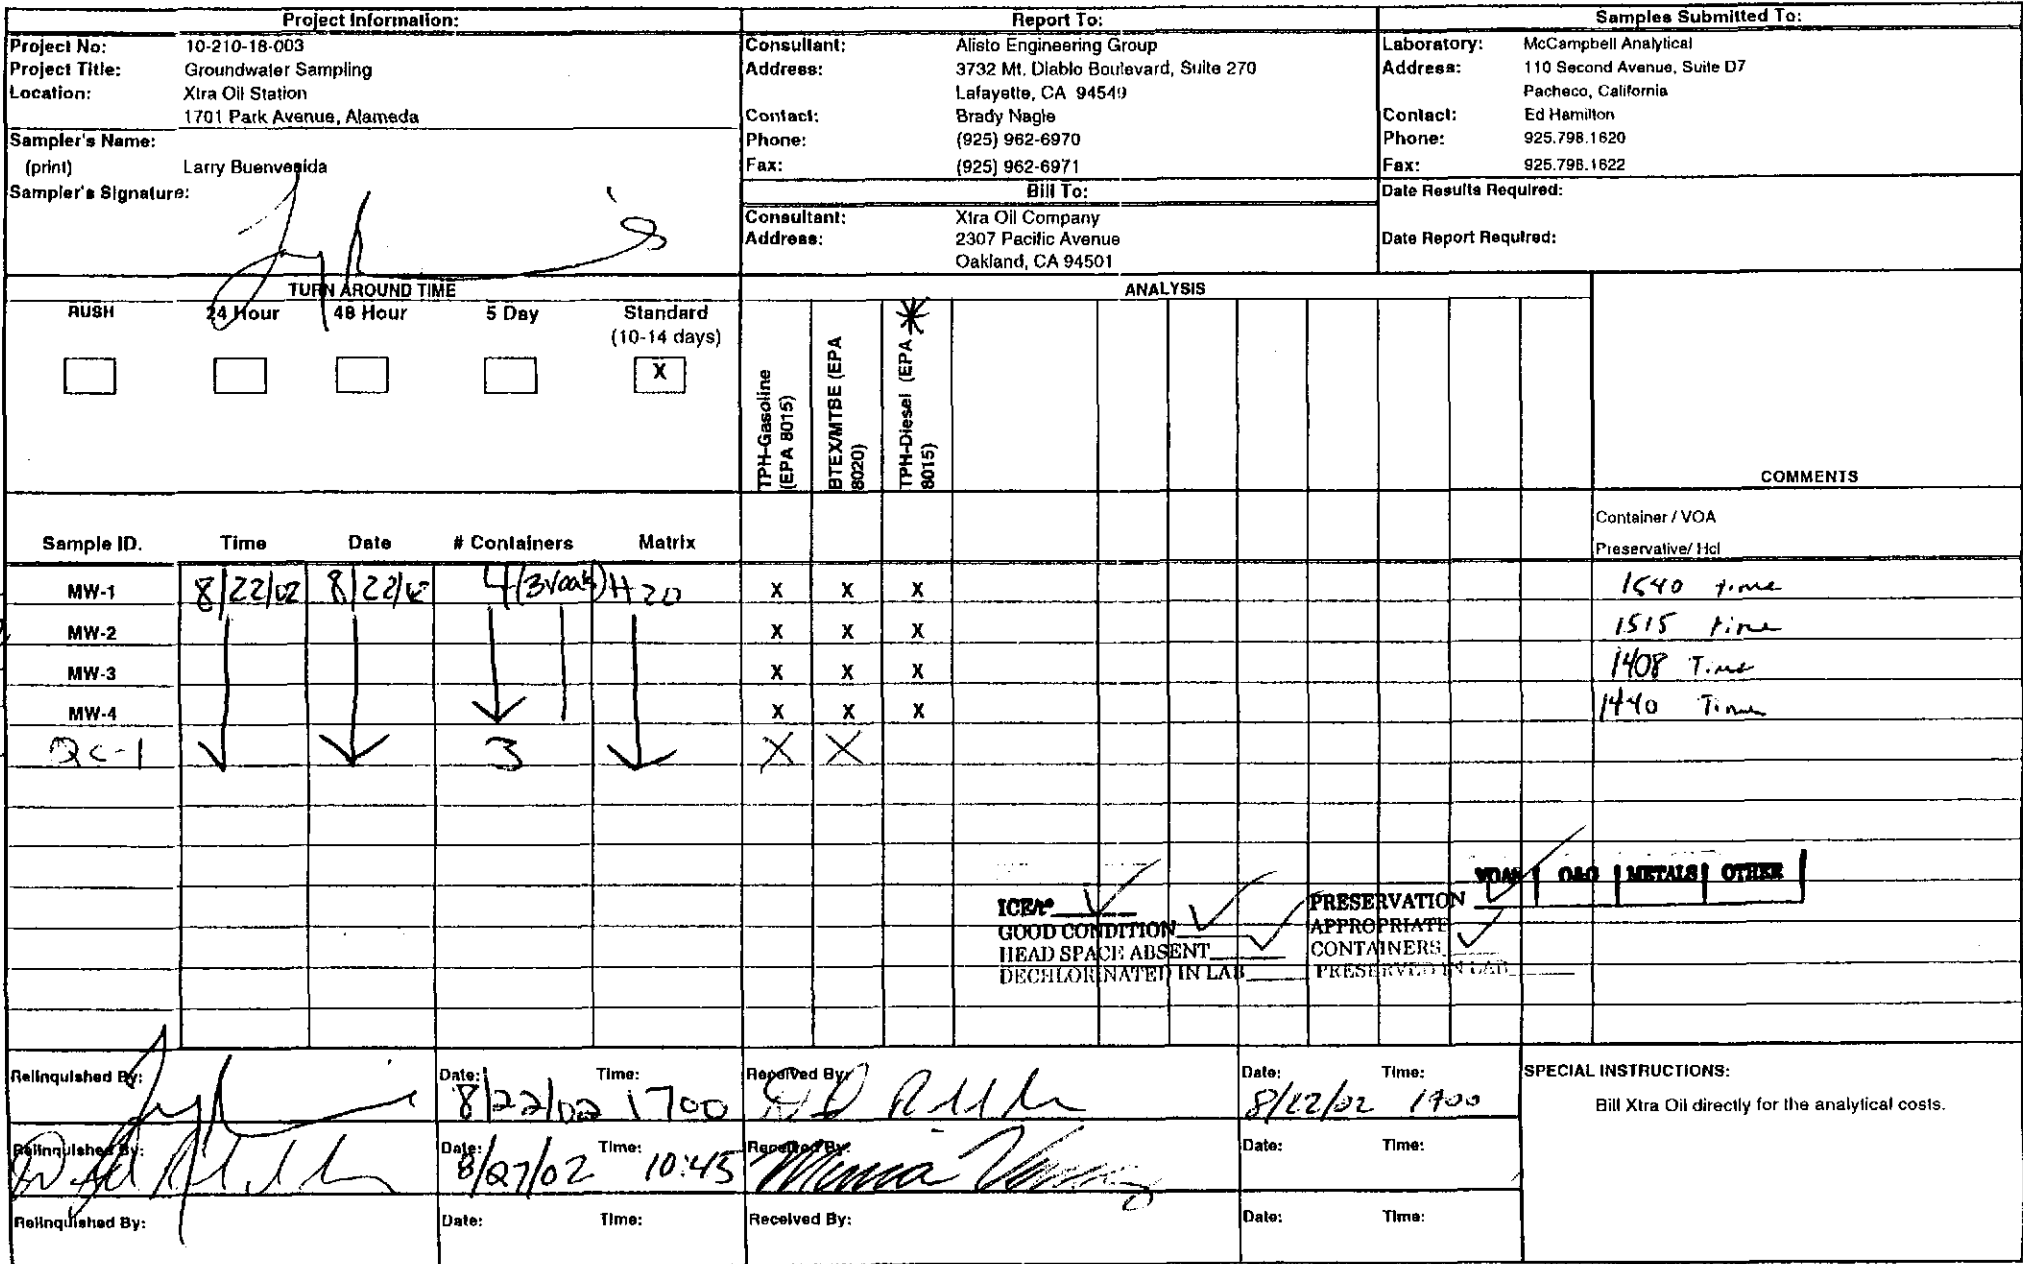 Project Information:
Project No: 10-210-18-003
Project Title: Groundwater Sampling
Location: Xtra Oil Station
1701 Park Avenue, Alameda
Sampler's Name:
(print) Larry Buenvenida
Sampler's Signature:
Report To:
Consultant: Alisto Engineering Group
Address: 3732 Mt. Diablo Boulevard, Suite 270
Lafayette, CA 94549
Contact: Brady Nagle
Phone: (925) 962-6970
Fax: (925) 962-6971
Bill To:
Consultant: Xtra Oil Company
Address: 2307 Pacific Avenue
Oakland, CA 94501
Samples Submitted To:
Laboratory: McCampbell Analytical
Address: 110 Second Avenue, Suite D7
Pacheco, California
Contact: Ed Hamilton
Phone: 925.798.1620
Fax: 925.798.1622
Date Results Required:
Date Report Required:
TURN AROUND TIME
RUSH 24 Hour 48 Hour 5 Day Standard
(10-14 days)
X
ANALYSIS
TPH-Gasoline
(EPA 8015)
BTEX/MTBE (EPA
8020)
TPH-Diesel (EPA *
8015)
COMMENTS
Container / VOA
Preservative/ Hcl
Sample ID. Time Date # Containers Matrix
MW-1 8/22/02 8/22/02 4(3voas) H2O X X X 1540 time
MW-2 X X X 1515 time
MW-3 X X X 1408 Time
MW-4 X X X 1440 Time
QC-1 3 X X
VOAS O&G METALS OTHER
ICE/t°
GOOD CONDITION
HEAD SPACE ABSENT
DECHLORINATED IN LAB
PRESERVATION
APPROPRIATE
CONTAINERS
PRESERVED IN LAB
Relinquished By: Date: 8/22/02 Time: 1700 Received By: Date: 8/22/02 Time: 1700
Relinquished By: Date: 8/27/02 Time: 10:45 Received By: Date: Time:
Relinquished By: Date: Time: Received By: Date: Time:
SPECIAL INSTRUCTIONS:
Bill Xtra Oil directly for the analytical costs.